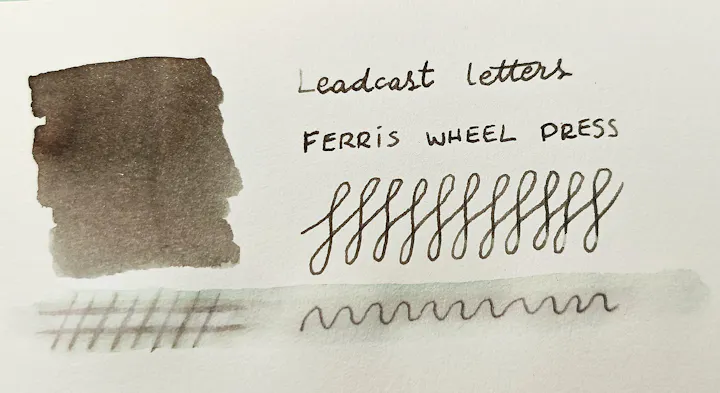 Leadcast letters
FERRiS WHEEL PRESS